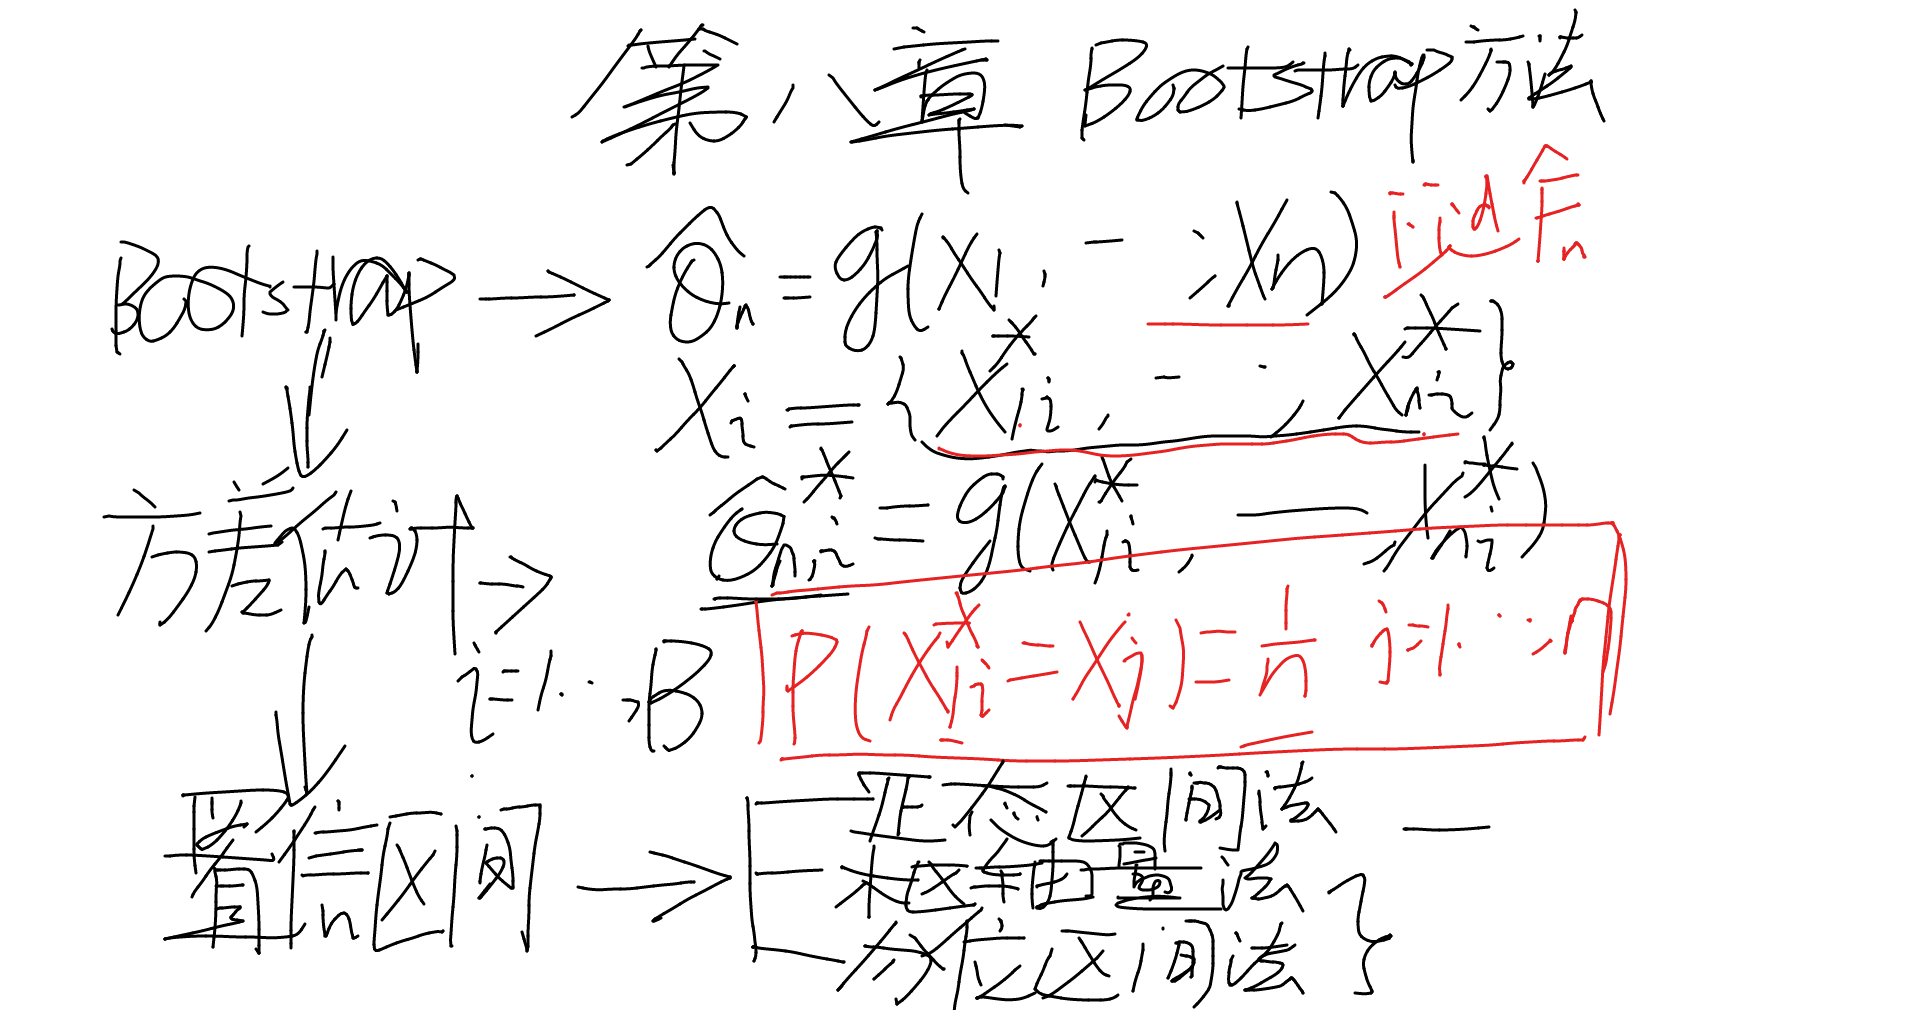 第八章 Bootstrap方法
Bootstrap → θ̂n = g(X1, - - ; Xn) i.i.d F̂n
Xi = {X*1i, - · · , X*ni}
θ̂*n,i = g(X*1i, — , X*ni)
方差估计 →
i=1··· ,B
P(X*1i = Xj) = 1/n j=1.··;n
置信区间 →
正态区间法 —
枢轴量法
分位区间法 }